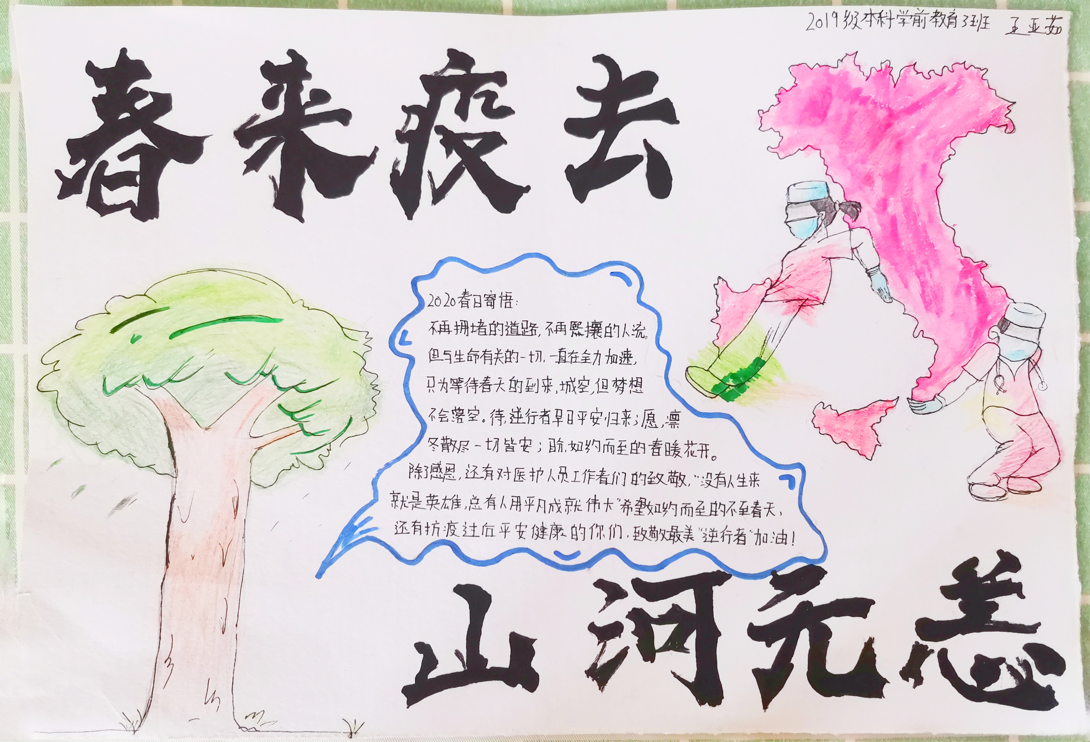 2019级本科学前教育3班 王亚茹
春来疫去
2020春日寄语:
不再拥堵的道路,不再熙攘的人流,
但与生命有关的一切,一直在全力加速,
只为等待春天的到来,城空,但梦想
不会落空。待,逆行者早日平安归来;愿,凛
冬散尽一切皆安;盼,如约而至的春暖花开。
除了感恩,还有对医护人员工作者们的致敬,"没有人生来
就是英雄,总有人用平凡成就伟大"希望如约而至的不至春天,
还有抗疫过后平安健康的你们,致敬最美"逆行者"加油!
山河无恙